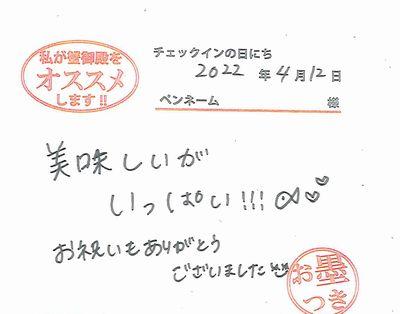 私が蟹御殿を
オススメ
します!!
チェックインの日にち
2022 年 4 月 12 日
ペンネーム 様
美味しいが
いっぱい!!!
お祝いもありがとう
ございました
お墨
つき